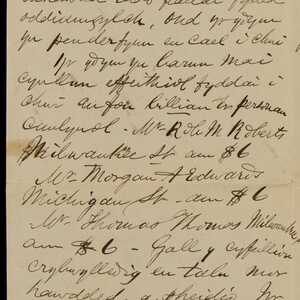 oddiwrthych, ond yr ydym
yn penderfynu eu cael i chwi
Yr ydym yn barnu mai
cynllun effeithiol fyddai i
chwi anfon billiau i'r personau
canlynol - Mr R Roberts
Milwaukee St am $6
Mr Morgan Edwards
Michigan St - am $6
Mr Thomas Thomas
am $6 - Gall y
crybwylledig eu talu mor
hawdded a